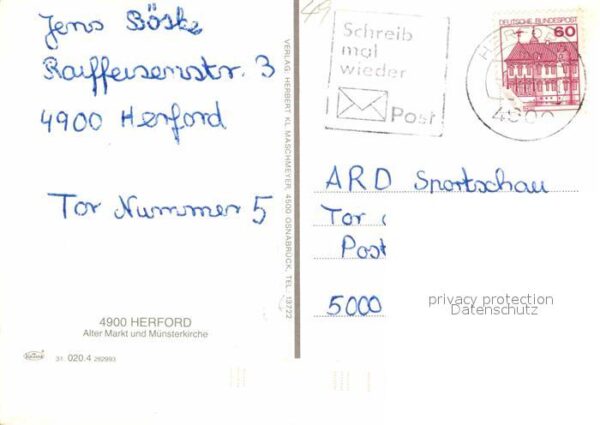 Jens Böske
Raiffeisenstr. 3
4900 Herford
Tor Nummer 5
4900 HERFORD
Alter Markt und Münsterkirche
31 020.4 292993
VERLAG: HERBERT KL. MASCHMEYER, 4500 OSNABRÜCK, TEL.: 13722
Schreib
mal
wieder
Post
DEUTSCHE BUNDESPOST
60
HERFORD
4900
ARD Sportschau
Tor
Post
5000
privacy protection
Datenschutz